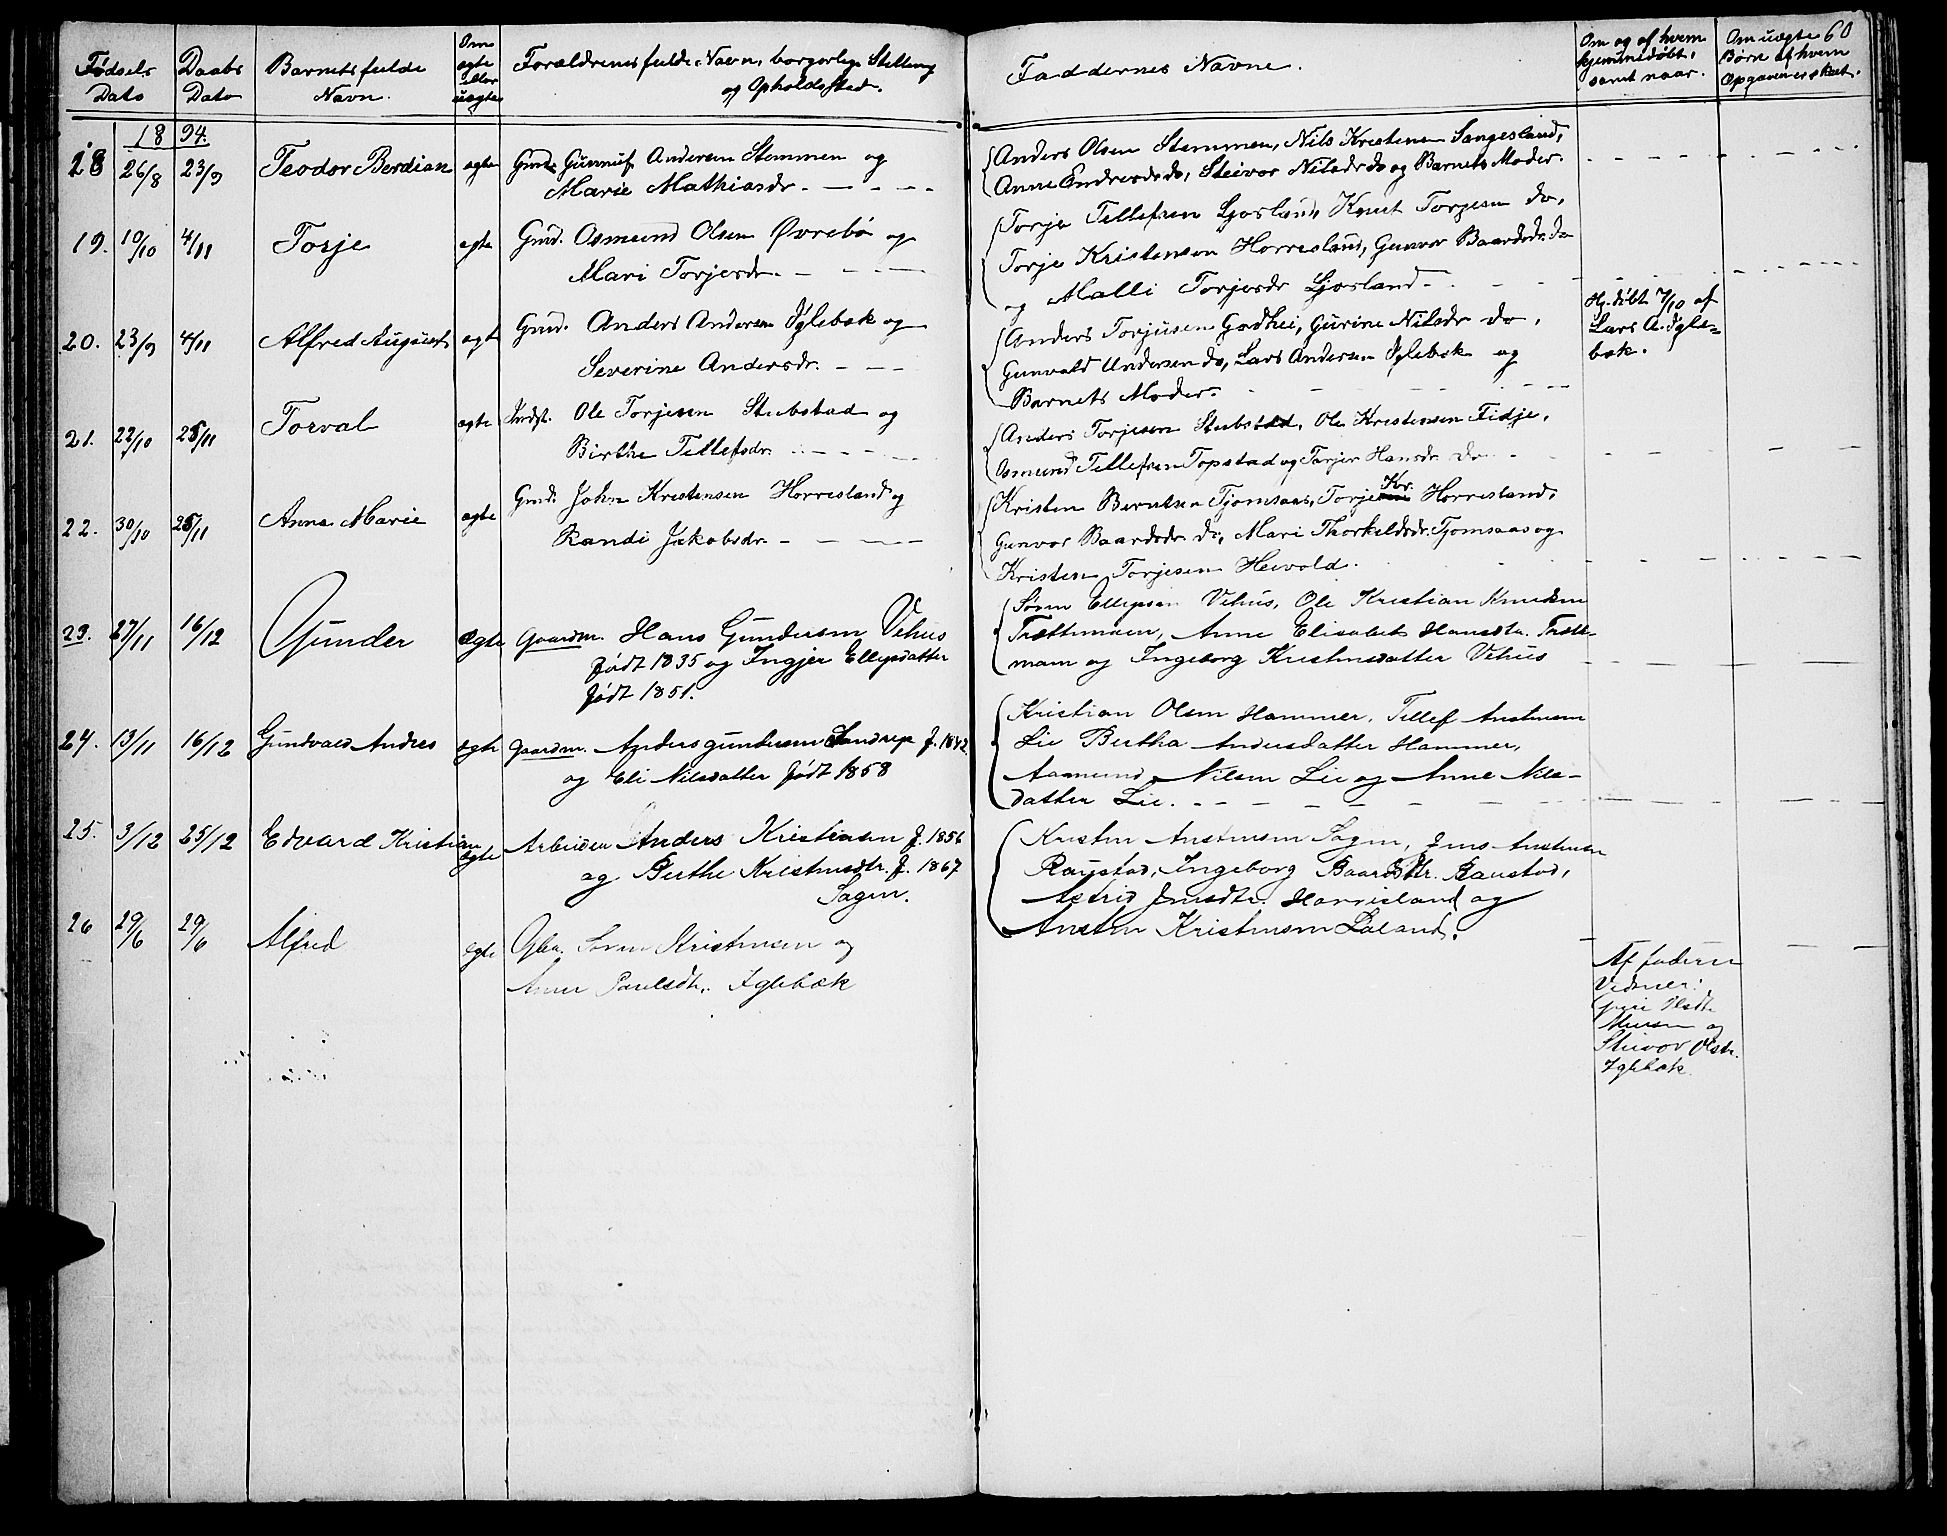 60
Fødsels Dato
Daabs Dato
Barnets fulde Navn.
Om ægte eller uægte
Forældrenes fulde Navn, borgerlige Stilling
og Opholdssted.
Faddernes Navne.
Om og af hvem hjemmedøbt, samt naar.
Om uægte Børn af hvem Opgaven er skeet.
1894.
18 26/8 23/9 Teodor Berdian ægte Gmd. Gunnuf Andersen Stemmen og
Marie Mathiasdr. - - - -
Anders Olsen Stemmen, Nils Kristensen Sangesland,
Anne Endresdr do, Steivor Nilsdr do og Barnets Moder.
19. 10/10 4/11 Torje ægte Gmd. Osmund Olsen Øvrebø og
Mari Torjesdr. - - - -
Torje Tellefsen Ljosland, Knut Torjesen do,
Torje Kristensen Horresland, Gunvor Baardsdr. do
og Malli Torjesdr Ljosland.
20. 23/9 4/11 Alfred August ægte Gmd. Anders Andersen Iglebæk og
Severine Andersdr. - - -
Anders Torjusen Godhei, Gurine Nilsdr do,
Gunvald Andersen do, Lars Andersen Iglebæk og
Barnets Moder.
Hj. døbt 7/10 af
Lars A. Igle-
bæk.
21. 22/10 25/11 Torval ægte Indst. Ole Torjesen Stubstad og
Birthe Tellefsdr. - - - -
Anders Torjesen Stubstad, Ole Kristensen Fidje,
Osmund Tellefsen Topstad og Tarjer Hansdr. do
22. 30/10 25/11 Anna Marie ægte Gmd. John Kristensen Horresland og
Randi Jakobsdr. - - - -
Kristen Berntsen Tjomsaas, Torje Kr. Horresland,
Gunvor Baardsdr. do, Mari Thorkeldsdr. Tjomsaas og
Kristen Torjesen Heivold.
23. 27/11 16/12 Gunder ægte Gaardm. Hans Gundersen Vehus
født 1835 og Ingjer Ellefsdatter
født 1851.
Søren Ellefsen Vehus, Ole Kristian Knudsen
Trættemoen, Anne Elisabet Hansdtr. Træt-
moen og Ingeborg Kristensdatter Vehus
24. 13/11 16/12 Gundvald Andres ægte Gaardm. Anders Gundersen Sandrip f. 1842
og Eli Nilsdatter født 1858
Kristian Olsen Hammer, Tellef Anstensen
Lie Bertha Andersdatter Hammer,
Aasmund Nilsen Lie og Anne Nils-
datter Lie.
25. 3/12 25/12 Edvard Kristian ægte Arbeider Anders Kristiansen f. 1856
og Berthe Kristensdtr. f. 1867
Sagen.
Kristen Anstensen Sagen, Jens Anstensen
Raustad, Ingeborg Baardsdtr. Raustad,
Astrid Jensdtr. Harrisland og
Ansten Kristensen Løland.
26 29/6 29/6 Alfred ægte Gbr. Søren Kristensen og
Anne Paulsdtr. Iglebæk
Af faderen
Vidner:
Olsdtr.
og
Steivor Olsdtr.
Iglebæk